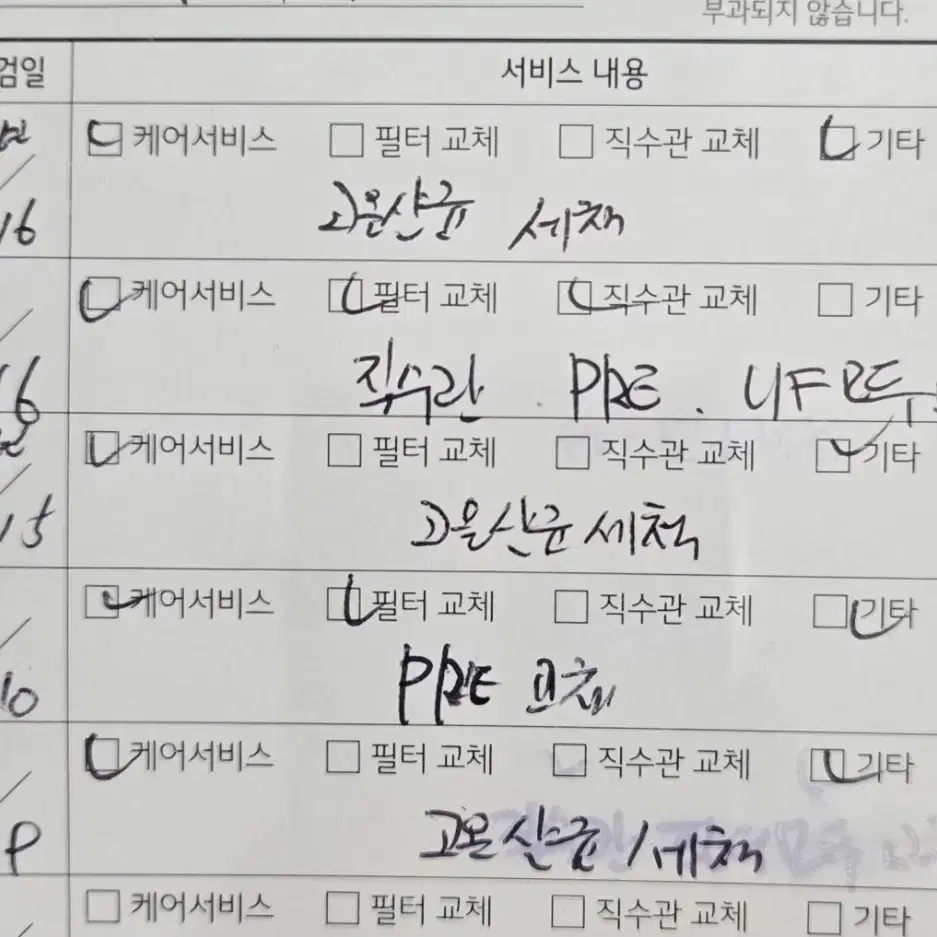 부과되지 않습니다.
검일 서비스 내용
케어서비스 필터 교체 직수관 교체 기타
16 고온살균 세척
케어서비스 필터 교체 직수관 교체 기타
16 직수관 . PRE . UF 모두
케어서비스 필터 교체 직수관 교체 기타
15 고온살균 세척
케어서비스 필터 교체 직수관 교체 기타
10 PRE 교체
케어서비스 필터 교체 직수관 교체 기타
9 고온살균 세척
케어서비스 필터 교체 직수관 교체 기타